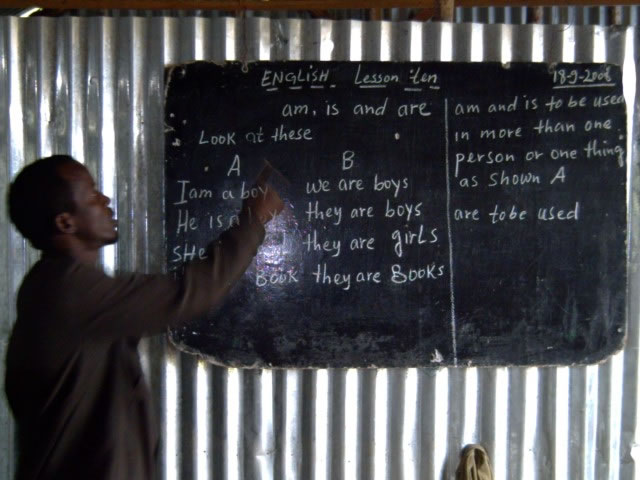 ENGLISH Lesson ten
18-9-2006
am, is and are
Look at these
A B
I am a boy we are boys
He is a they are boys
SHe they are girls
Book they are Books
am and is to be used
in more than one
person or one thing
as shown A
are to be used